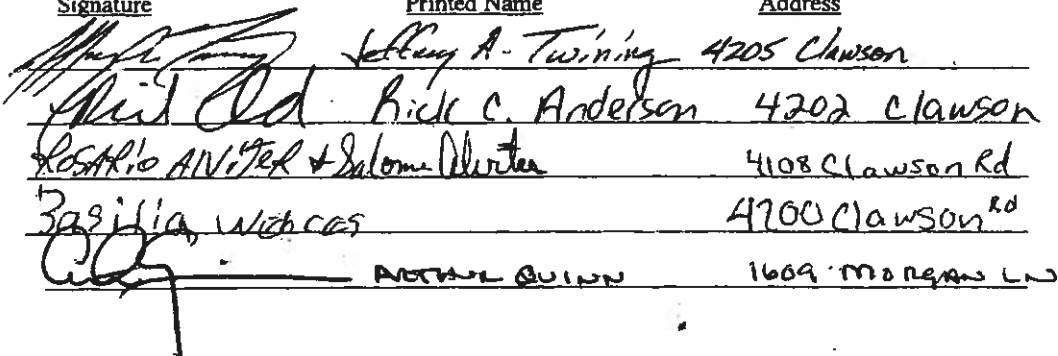 Signature Printed Name Address
Jeffrey A. Twining 4205 Clawson
Rick C. Anderson 4202 Clawson
ROSARIO & Salome 4108 Clawson Rd
Basilia 4200 Clawson Rd
ARTHUR QUINN 1609 MORGAN LN